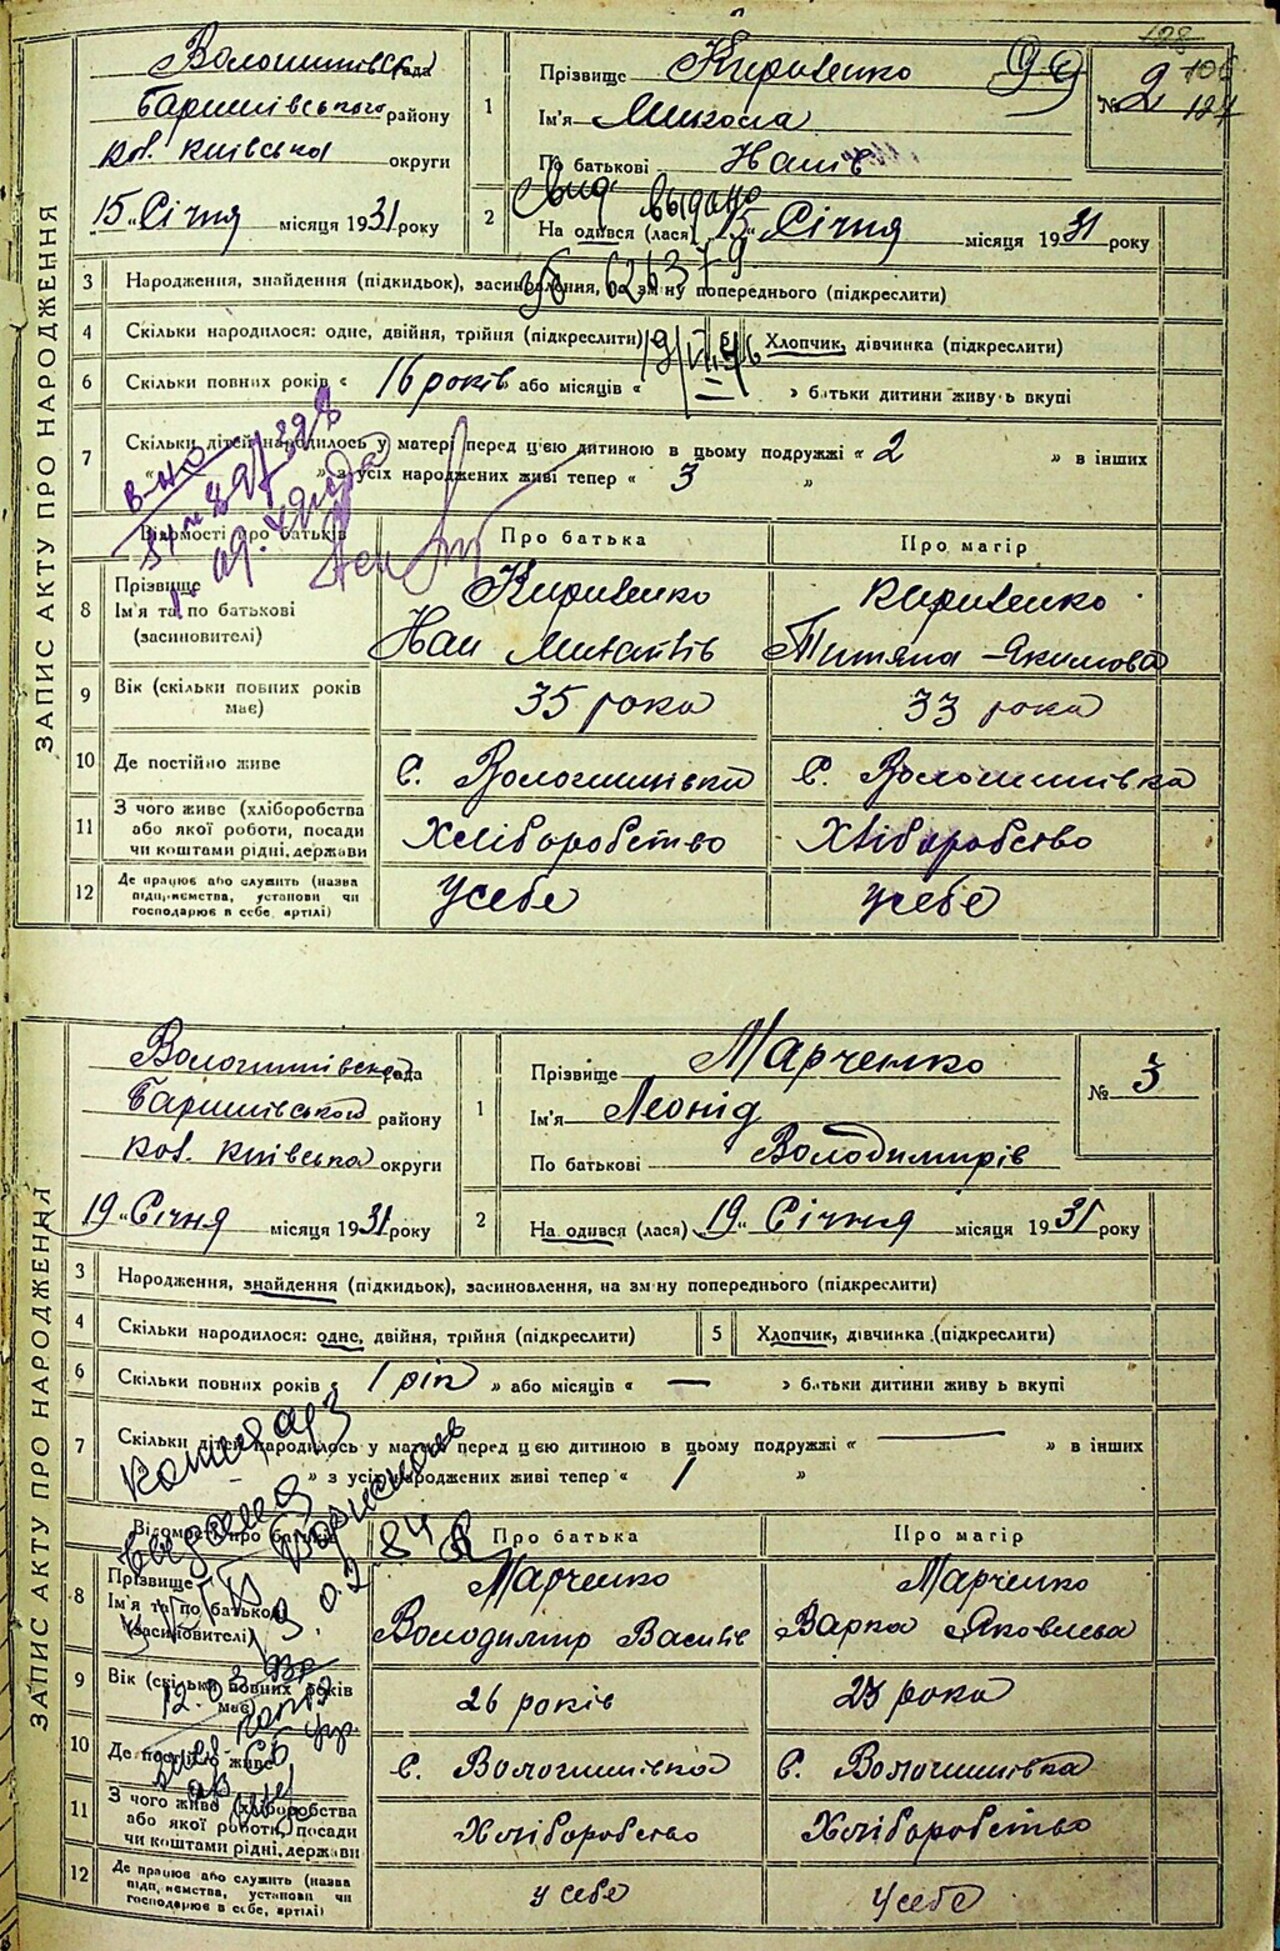 ЗАПИС АКТУ ПРО НАРОДЖЕННЯ
Волошинівська рада
Баришівського району
кол. київська округи
"15" Січня місяця 1931 року
1
Прізвище Кириченко
Ім'я Микола
По батькові Іванів
99
№ 2
106
2
На одився (лася) "15" Січня місяця 1931 року
3 Народження, знайдення (підкидьок), засиновлення, на зм ну попереднього (підкреслити)
4 Скільки народилося: одне, двійня, трійня (підкреслити) 5 Хлопчик, дівчинка (підкреслити)
6 Скільки повних років « 16 років » або місяців « — » батьки дитини живу ь вкупі
7 Скільки дітей народилось у матері перед цією дитиною в цьому подружжі « 2 » в інших
« » з усіх народжених живі тепер « 3 »
Відомості про батьків Про батька Про матір
8 Прізвище
Ім'я та по батькові
(засиновителі)
Кириченко
Іван
Кириченко
Титяна Якимова
9 Вік (скільки повних років має)
35 рока 33 рока
10 Де постійно живе
с. Волошинівка с. Волошинівка
11 З чого живе (хліборобства
або якої роботи, посади
чи коштами рідні, держави
Хліборобство Хліборобство
12 Де працює або служить (назва
підп,иємства, установи чи
господарює в себе, артілі)
У себе у себе
ЗАПИС АКТУ ПРО НАРОДЖЕННЯ
Волошинівська рада
Баришівського району
кол. київська округи
"19" Січня місяця 1931 року
1
Прізвище Марченко
Ім'я Леонід
По батькові Володимирів
№ 3
2
На одився (лася) "19" Січня місяця 1931 року
3 Народження, знайдення (підкидьок), засиновлення, на зм ну попереднього (підкреслити)
4 Скільки народилося: одне, двійня, трійня (підкреслити) 5 Хлопчик, дівчинка (підкреслити)
6 Скільки повних років « 1 рік » або місяців « — » батьки дитини живу ь вкупі
7 Скільки дітей народилось у матері перед цією дитиною в цьому подружжі « — » в інших
« » з усіх народжених живі тепер « 1 »
Відомості про батьків Про батька Про матір
8 Прізвище
Ім'я та по батькові
(засиновителі)
Марченко
Володимир Василів
Марченко
Варка Яковлева
9 Вік (скільки повних років має)
26 років рока
10 Де постійно живе
с. Волошинівка с. Волошинівка
11 З чого живе (хліборобства
або якої роботи, посади
чи коштами рідні, держави
Хліборобство Хліборобство
12 Де працює або служить (назва
підп,иємства, установи чи
господарює в себе, артілі)
у себе у себе